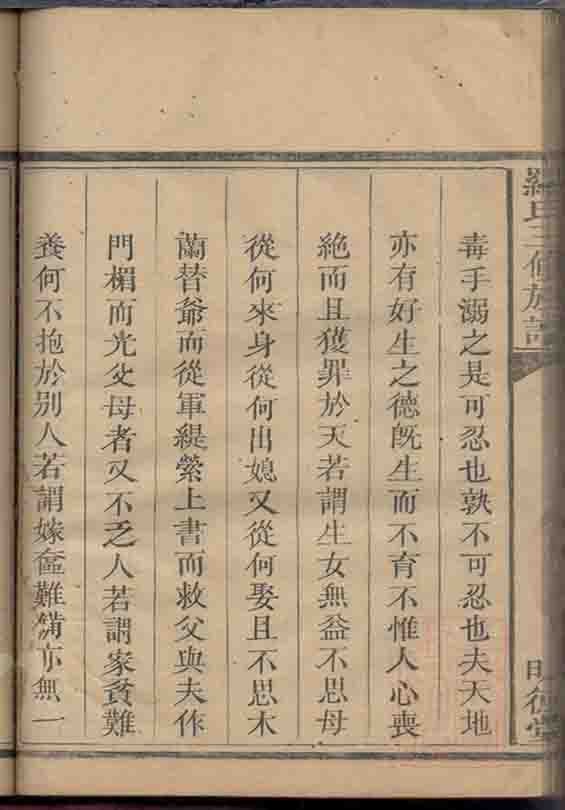 羅氏三修族譜
明德堂
毒手溺之是可忍也孰不可忍也夫天地
亦有好生之德旣生而不育不惟人心喪
絶而且獲罪於天若謂生女無益不思母
從何來身從何出媳又從何娶且不思木
蘭替爺而從軍緹縈上書而救父與夫作
門楣而光父母者又不乏人若謂家貧難
養何不抱於别人若謂嫁奩難備亦無一